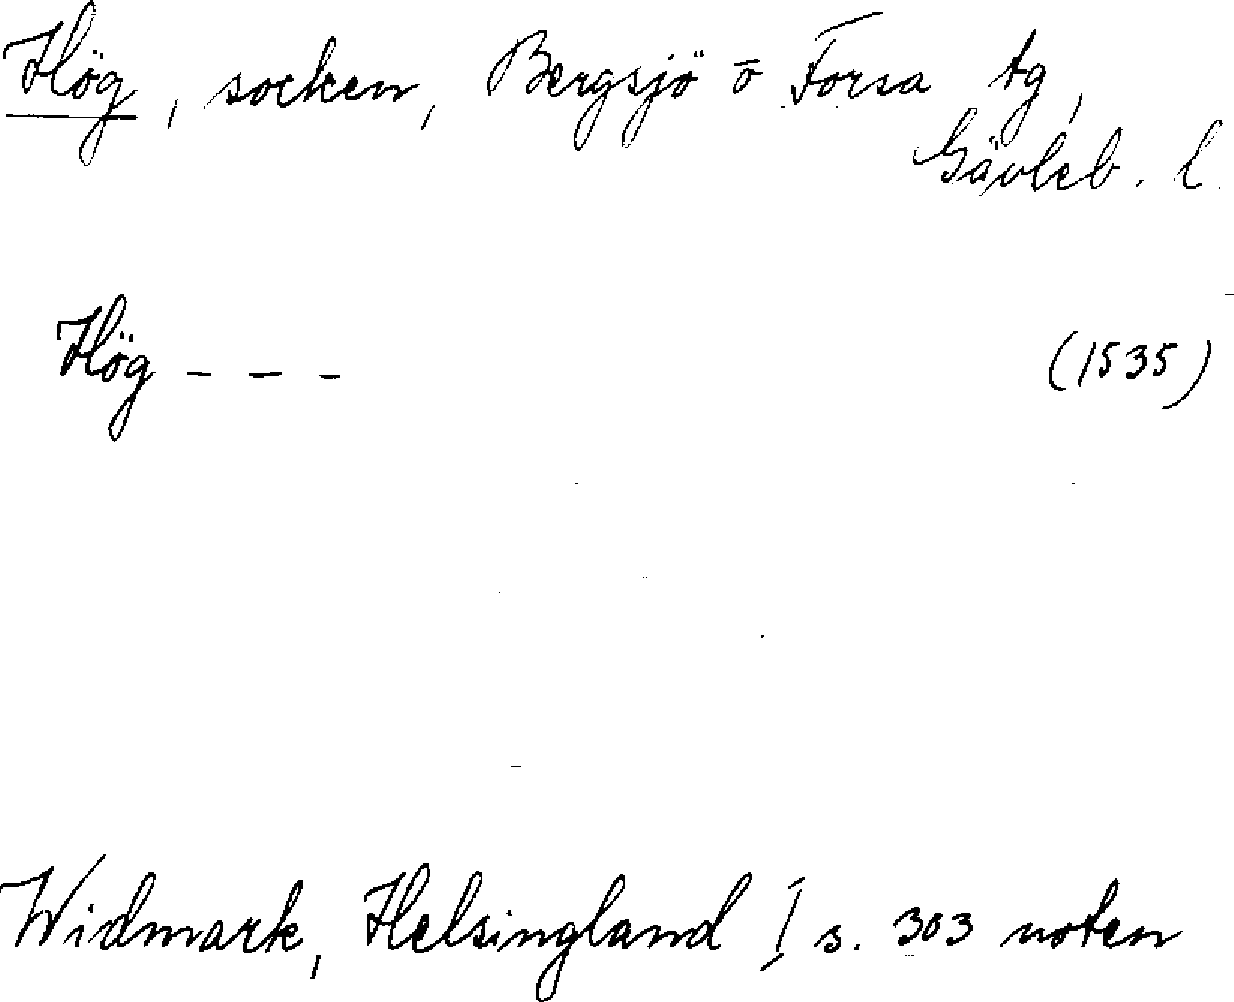 Hög, socken, Bergsjö o Forsa tg,
Gävleb. l.
Hög - - - (1535)
Widmark, Helsingland I s. 303 noten